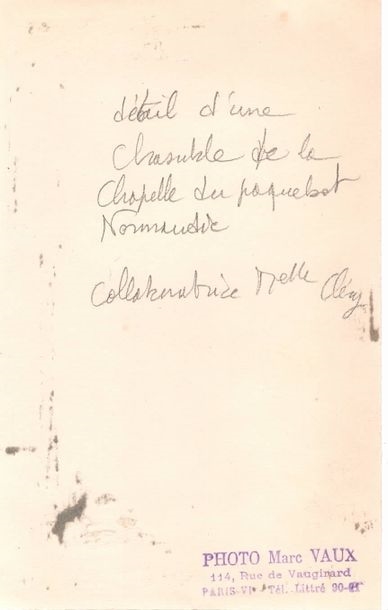 détail d'une
Chasuble de la
Chapelle du paquebot
Normandie
Collaboratrice Melle Cléry
PHOTO Marc VAUX
114, Rue de Vaugirard
PARIS-VIᵉ Tél. Littré 90-21